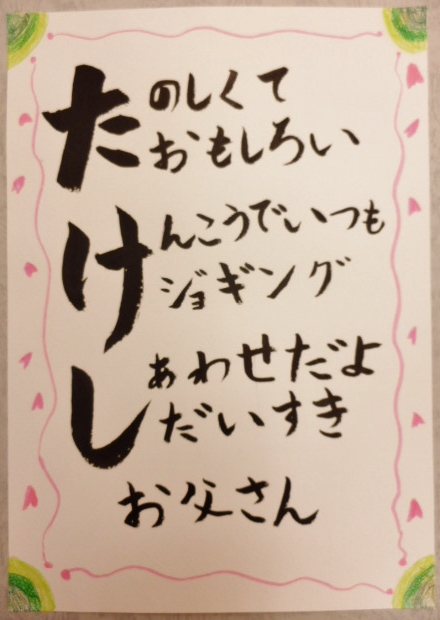 たのしくて
おもしろい
けんこうでいつも
ジョギング
しあわせだよ
だいすき
お父さん